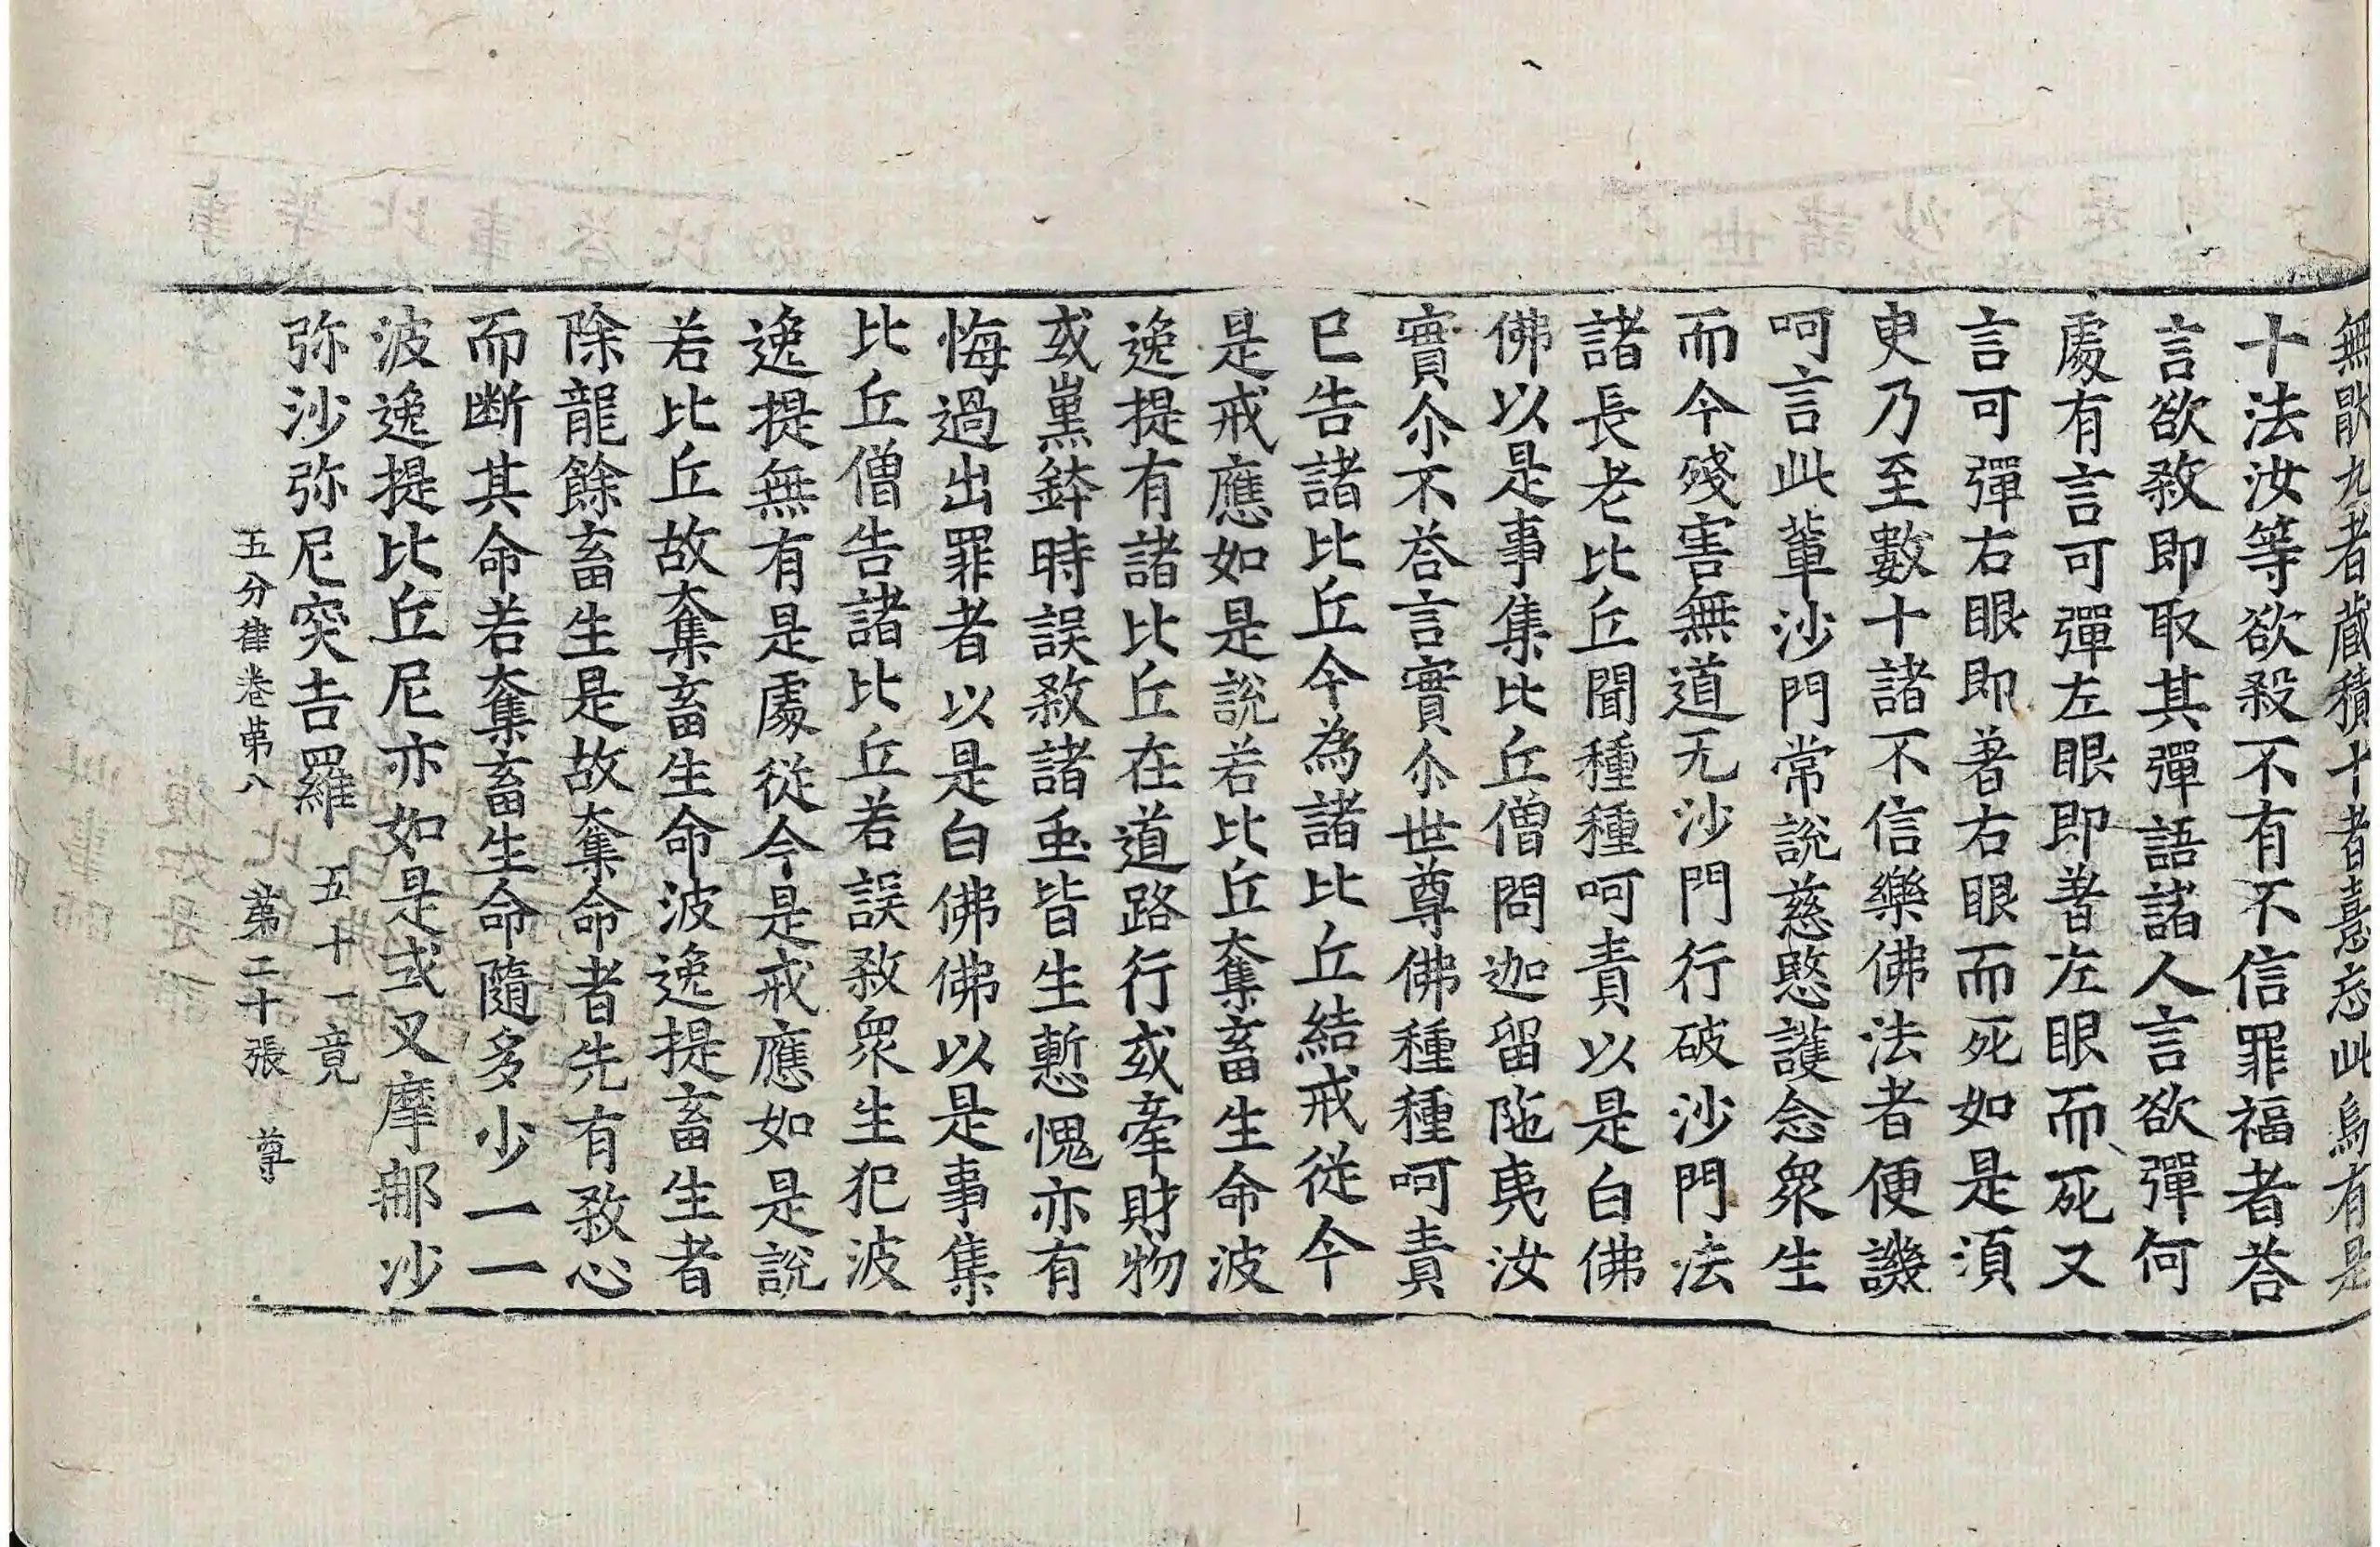 無猒九者藏積十者憙忘此烏有是
十法汝等欲殺不有不信罪福者荅
言欲煞即取其彈語諸人言欲彈何
處有言可彈左眼即著左眼而死又
言可彈右眼即著右眼而死如是須
㬰乃至數十諸不信樂佛法者便譏
呵言此輩沙門常說慈愍護念衆生
而今殘害無道无沙門行破沙門法
諸長老比丘聞種種呵責以是白佛
佛以是事集比丘僧問迦留陁夷汝
實尒不荅言實尒世尊佛種種呵責
已告諸比丘今為諸比丘結戒從今
是戒應如是說若比丘奪畜生命波
逸提有諸比丘在道路行或牽財物
或熏鉢時誤煞諸虫皆生慙愧亦有
悔過出罪者以是白佛佛以是事集
比丘僧告諸比丘若誤煞衆生犯波
逸提無有是處從今是戒應如是說
若比丘故奪畜生命波逸提畜生者
除龍餘畜生是故奪命者先有煞心
而断其命若奪畜生命隨多少一一
波逸提比丘尼亦如是式叉摩郍沙
弥沙弥尼突吉羅 五十一竟
五分律卷苐八 苐二十張 尊